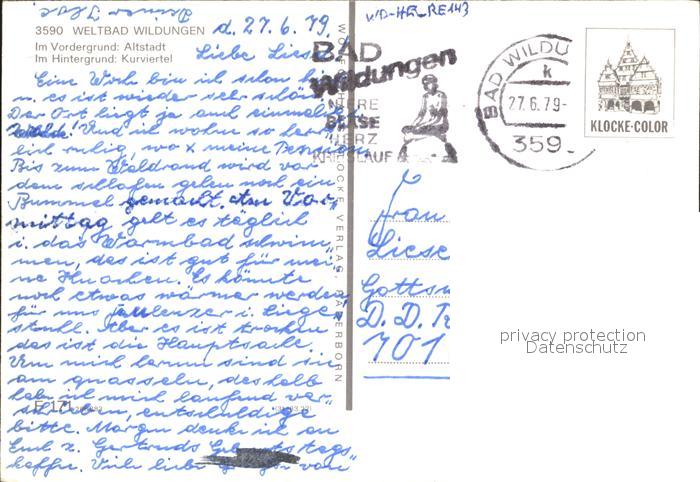 Deiner Ilse
3590 WELTBAD WILDUNGEN
Im Vordergrund: Altstadt
Im Hintergrund: Kurviertel
d. 27.6.79.
Liebe Liesel
Eine Woche bin ich schon hier
u. es ist wieder sehr schön.
Der Ort liegt ja auch einmalig
Und ich wohne so herr-
lich ruhig, wo meine Pension
Bis zum Waldrand wird vor
dem schlafen gehen noch ein
Bummel gemacht. Am Vor-
mittag geht es täglich
i. das Warmbad schwim-
men, das ist gut für mei-
ne Knochen. Es könnte
noch etwas wärmer werden,
für uns Faulenzer i. Liege-
stuhl. Aber es ist trocken
das ist die Hauptsache.
Um mich herum sind sie
am quasseln, deshalb
hab ich mich laufend ver-
schrieben, entschuldige
bitte. Morgen denke ich an
Euch z. Gertruds Geburtstags-
kaffee. Viele liebe von
E 171
WOLFGANG KLOCKE VERLAG, PADERBORN
WD-HR_RE143
BAD
Wildungen
NIERE
BLASE
HERZ
KREISLAUF
BAD WILDU
k
27.6.79-
359
KLOCKE-COLOR
Frau
Liese
D. D. R
701
privacy protection
Datenschutz